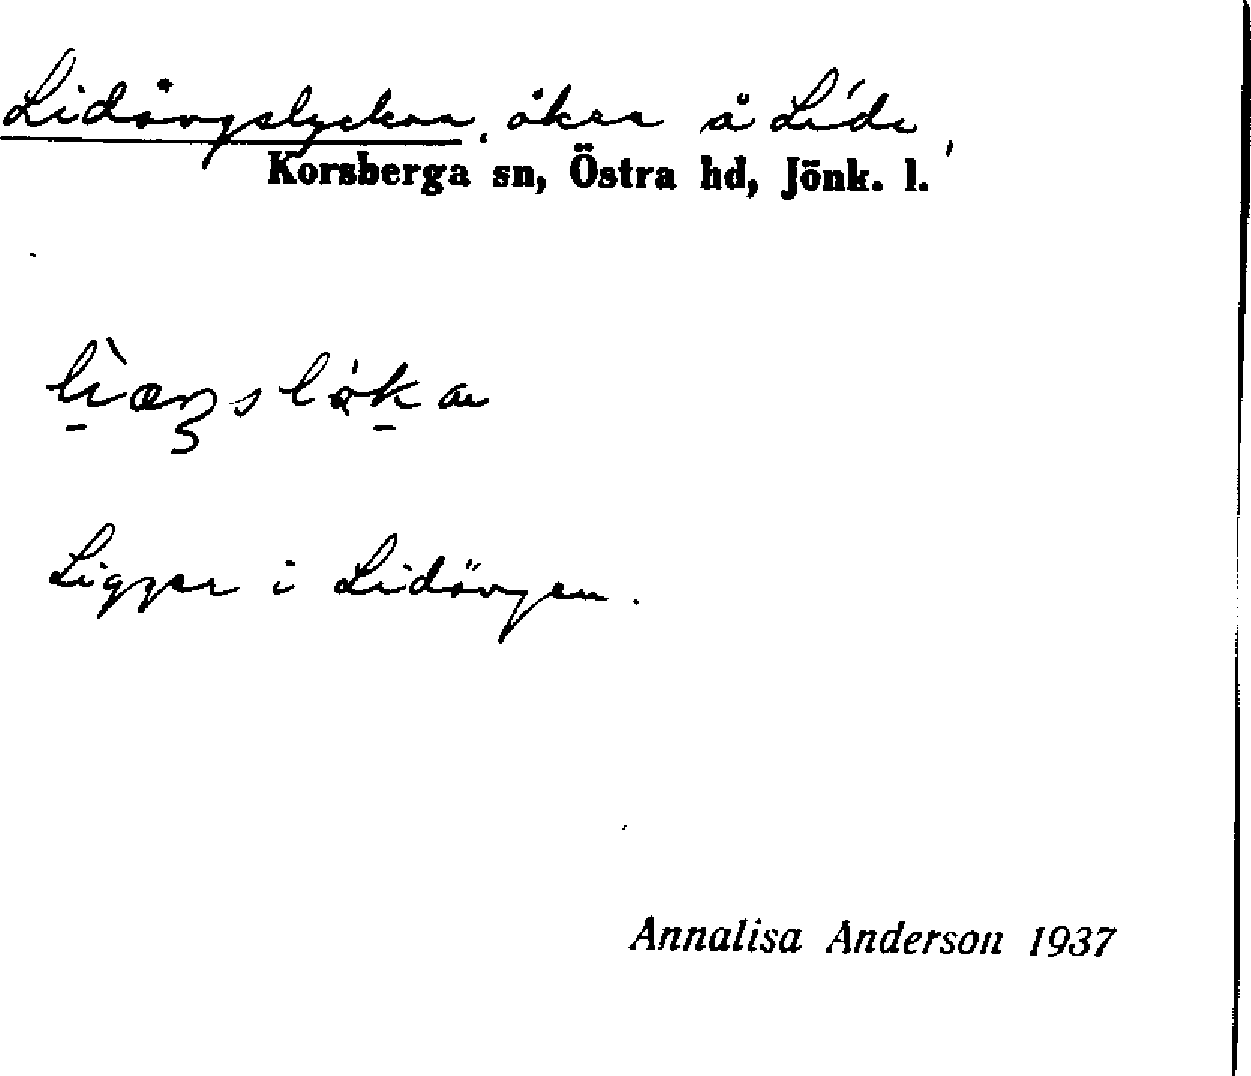 Lidängslyckan, åker å Lida,
Korsberga sn, Östra hd, Jönk. l.
Ligger i Lidängen.
Annalisa Anderson 1937